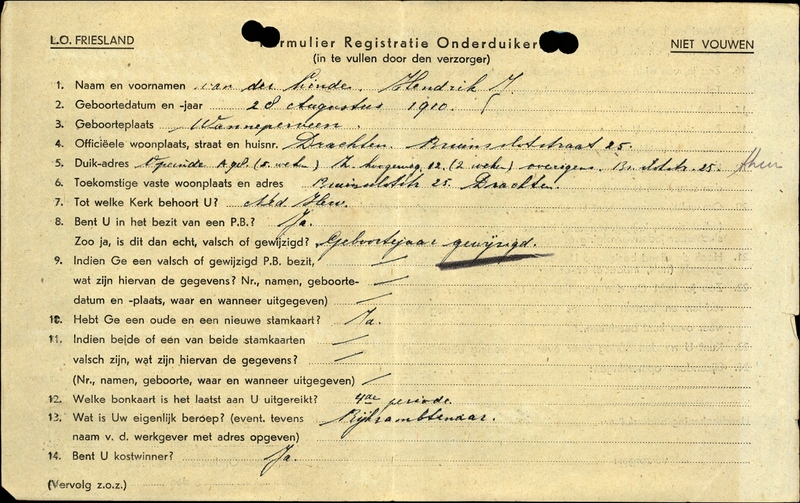 L.O. FRIESLAND
Formulier Registratie Onderduiker
NIET VOUWEN
(in te vullen door den verzorger)
1. Naam en voornamen van der Linde. Hendrik J.
2. Geboortedatum en -jaar 28 Augustus 1910.
3. Geboorteplaats Wanneperveen.
4. Officiëele woonplaats, straat en huisnr. Drachten. Bruinslotstraat 25.
5. Duik-adres Opeinde (5 weken) 12. (2 weken) overigens. 25
6. Toekomstige vaste woonplaats en adres Bruinslotstr 25 Drachten.
7. Tot welke Kerk behoort U? Ned Herv.
8. Bent U in het bezit van een P.B.? Ja.
Zoo ja, is dit dan echt, valsch of gewijzigd? Geboortejaar gewijzigd.
9. Indien Ge een valsch of gewijzigd P.B. bezit, /
wat zijn hiervan de gegevens? Nr., namen, geboorte- /
datum en -plaats, waar en wanneer uitgegeven) /
10. Hebt Ge een oude en een nieuwe stamkaart? Ja.
11. Indien beide of een van beide stamkaarten
valsch zijn, wat zijn hiervan de gegevens? /
(Nr., namen, geboorte, waar en wanneer uitgegeven) /
12. Welke bonkaart is het laatst aan U uitgereikt? 4de periode.
13. Wat is Uw eigenlijk beroep? (event. tevens Rijksambtenaar.
naam v. d. werkgever met adres opgeven)
14. Bent U kostwinner? Ja.
(Vervolg z.o.z.)